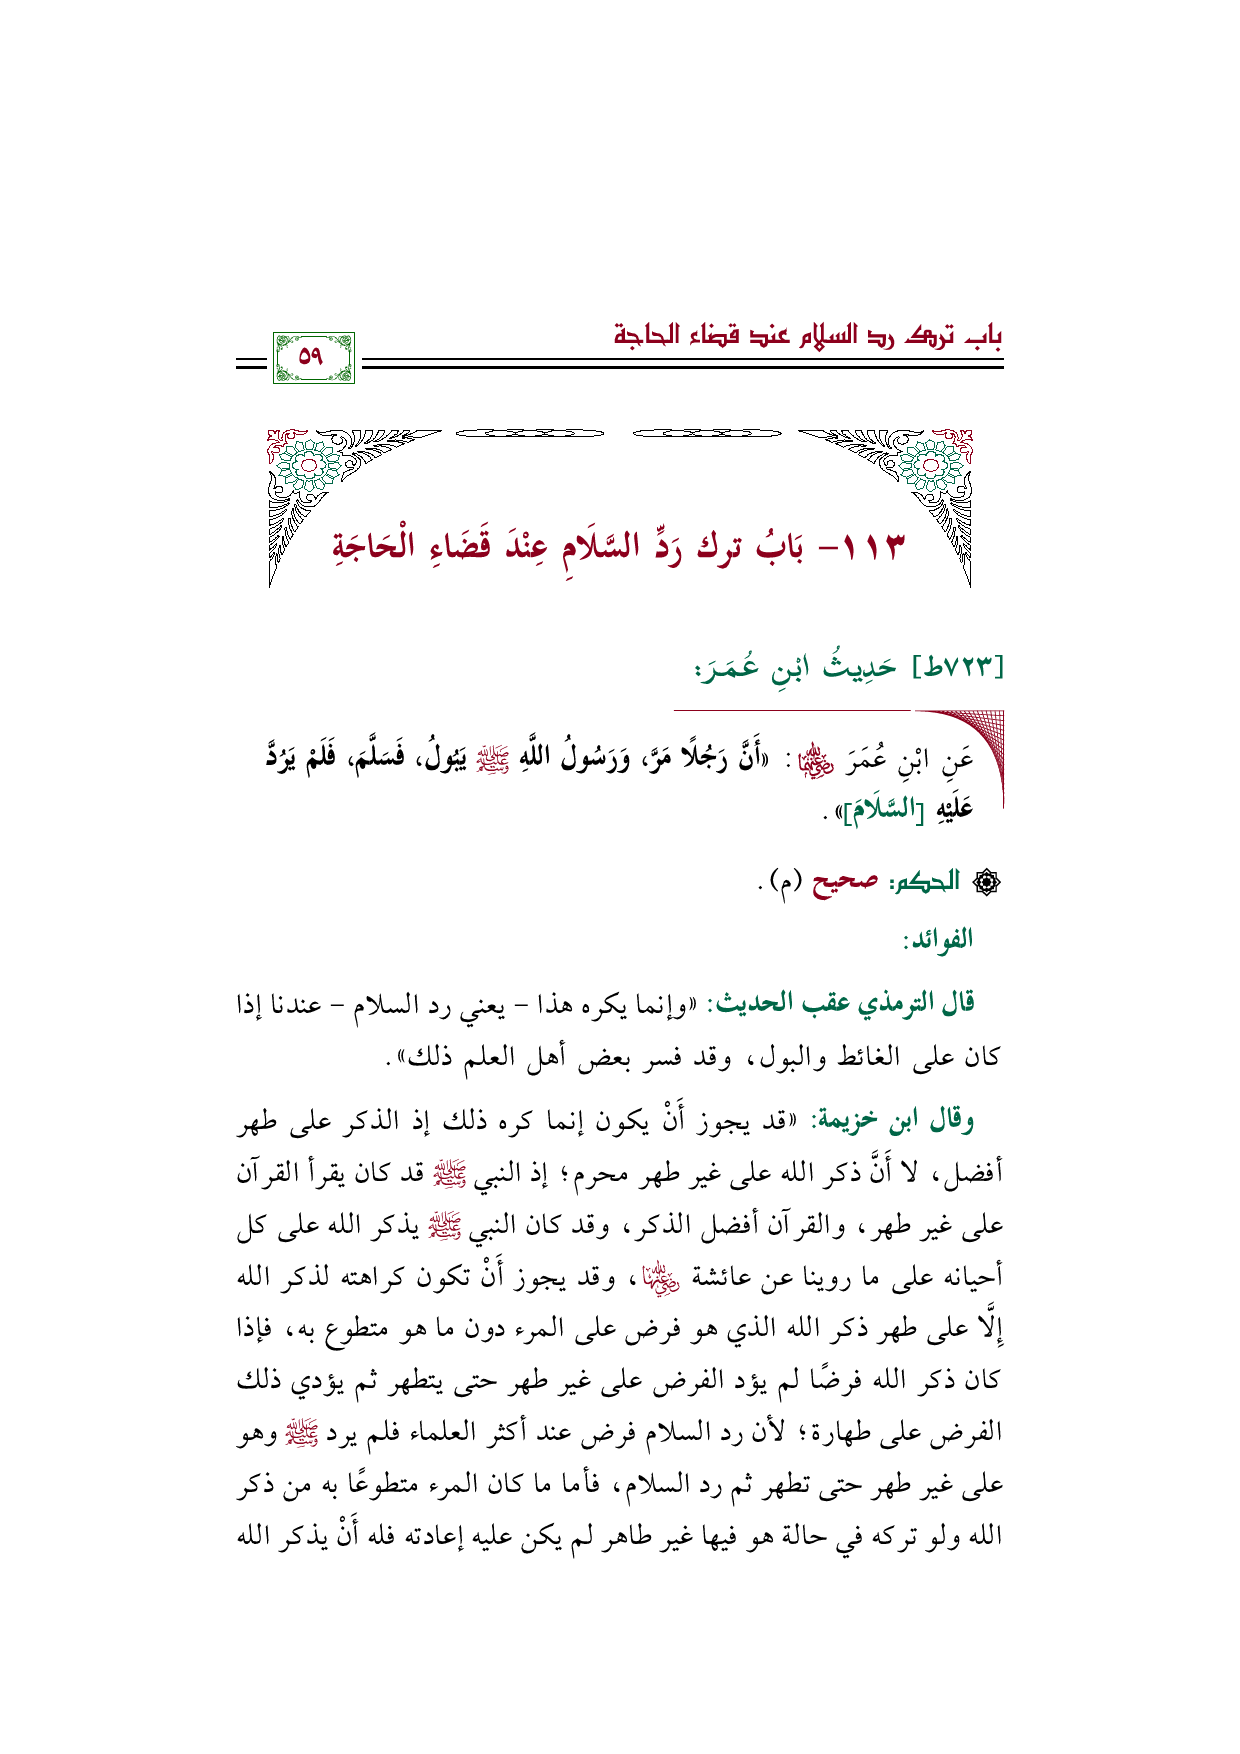 باب ترك رد السلام عند قضاء الحاجة
٥٩
١١٣- بَابُ ترك رَدِّ السَّلَامِ عِنْدَ قَضَاءِ الْحَاجَةِ
[٧٢٣ط] حَدِيثُ ابْنِ عُمَرَ:
عَنِ ابْنِ عُمَرَ رضي الله عنهما: «أَنَّ رَجُلًا مَرَّ، وَرَسُولُ اللَّهِ ﷺ يَبُولُ، فَسَلَّمَ، فَلَمْ يَرُدَّ
عَلَيْهِ [السَّلَامَ]».
الحكم: صحيح (م).
الفوائد:
قال الترمذي عقب الحديث: «وإنما يكره هذا - يعني رد السلام - عندنا إذا
كان على الغائط والبول، وقد فسر بعض أهل العلم ذلك».
وقال ابن خزيمة: «قد يجوز أَنْ يكون إنما كره ذلك إذ الذكر على طهر
أفضل، لا أَنَّ ذكر الله على غير طهر محرم؛ إذ النبي ﷺ قد كان يقرأ القرآن
على غير طهر، والقرآن أفضل الذكر، وقد كان النبي ﷺ يذكر الله على كل
أحيانه على ما روينا عن عائشة رضي الله عنها، وقد يجوز أَنْ تكون كراهته لذكر الله
إِلَّا على طهر ذكر الله الذي هو فرض على المرء دون ما هو متطوع به، فإذا
كان ذكر الله فرضًا لم يؤد الفرض على غير طهر حتى يتطهر ثم يؤدي ذلك
الفرض على طهارة؛ لأن رد السلام فرض عند أكثر العلماء فلم يرد ﷺ وهو
على غير طهر حتى تطهر ثم رد السلام، فأما ما كان المرء متطوعًا به من ذكر
الله ولو تركه في حالة هو فيها غير طاهر لم يكن عليه إعادته فله أَنْ يذكر الله